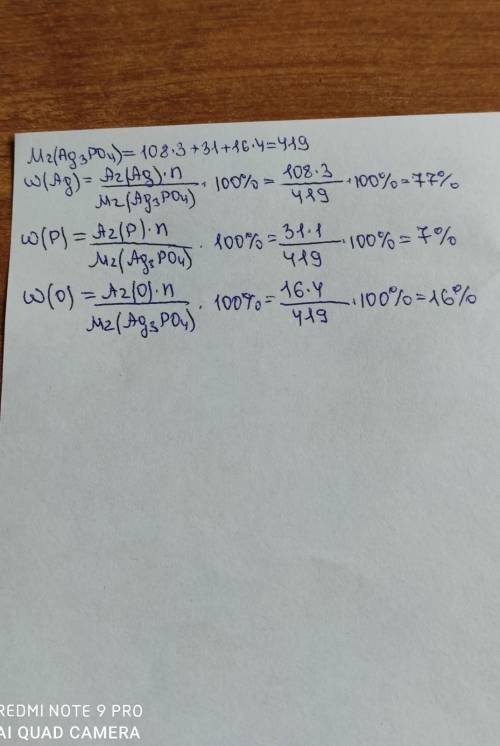 Mr(Ag₃PO₄)=108·3+31+16·4=419
w(Ag)=Ar(Ag)·n/Mr(Ag₃PO₄)·100%=108·3/419·100%=77%
w(P)=Ar(P)·n/Mr(Ag₃PO₄)·100%=31·1/419·100%=7%
w(O)=Ar(O)·n/Mr(Ag₃PO₄)·100%=16·4/419·100%=16%
REDMI NOTE 9 PRO
AI QUAD CAMERA